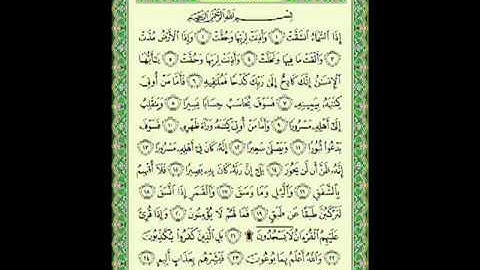 بِسْمِ ٱللَّهِ ٱلرَّحْمَٰنِ ٱلرَّحِيمِ
إِذَا ٱلسَّمَآءُ ٱنشَقَّتْ ١ وَأَذِنَتْ لِرَبِّهَا وَحُقَّتْ ٢ وَإِذَا ٱلْأَرْضُ مُدَّتْ
٣ وَأَلْقَتْ مَا فِيهَا وَتَخَلَّتْ ٤ وَأَذِنَتْ لِرَبِّهَا وَحُقَّتْ ٥ يَٰٓأَيُّهَا
ٱلْإِنسَٰنُ إِنَّكَ كَادِحٌ إِلَىٰ رَبِّكَ كَدْحًا فَمُلَٰقِيهِ ٦ فَأَمَّا مَنْ أُوتِيَ
كِتَٰبَهُۥ بِيَمِينِهِۦ ٧ فَسَوْفَ يُحَاسَبُ حِسَابًا يَسِيرًا ٨ وَيَنقَلِبُ
إِلَىٰٓ أَهْلِهِۦ مَسْرُورًا ٩ وَأَمَّا مَنْ أُوتِيَ كِتَٰبَهُۥ وَرَآءَ ظَهْرِهِۦ ١٠ فَسَوْفَ
يَدْعُوا۟ ثُبُورًا ١١ وَيَصْلَىٰ سَعِيرًا ١٢ إِنَّهُۥ كَانَ فِىٓ أَهْلِهِۦ مَسْرُورًا ١٣
إِنَّهُۥ ظَنَّ أَن لَّن يَحُورَ ١٤ بَلَىٰٓ إِنَّ رَبَّهُۥ كَانَ بِهِۦ بَصِيرًا ١٥ فَلَآ أُقْسِمُ
بِٱلشَّفَقِ ١٦ وَٱلَّيْلِ وَمَا وَسَقَ ١٧ وَٱلْقَمَرِ إِذَا ٱتَّسَقَ ١٨
لَتَرْكَبُنَّ طَبَقًا عَن طَبَقٍ ١٩ فَمَا لَهُمْ لَا يُؤْمِنُونَ ٢٠ وَإِذَا قُرِئَ
عَلَيْهِمُ ٱلْقُرْءَانُ لَا يَسْجُدُونَ ۩ ٢١ بَلِ ٱلَّذِينَ كَفَرُوا۟ يُكَذِّبُونَ
٢٢ وَٱللَّهُ أَعْلَمُ بِمَا يُوعُونَ ٢٣ فَبَشِّرْهُم بِعَذَابٍ أَلِيمٍ ٢٤